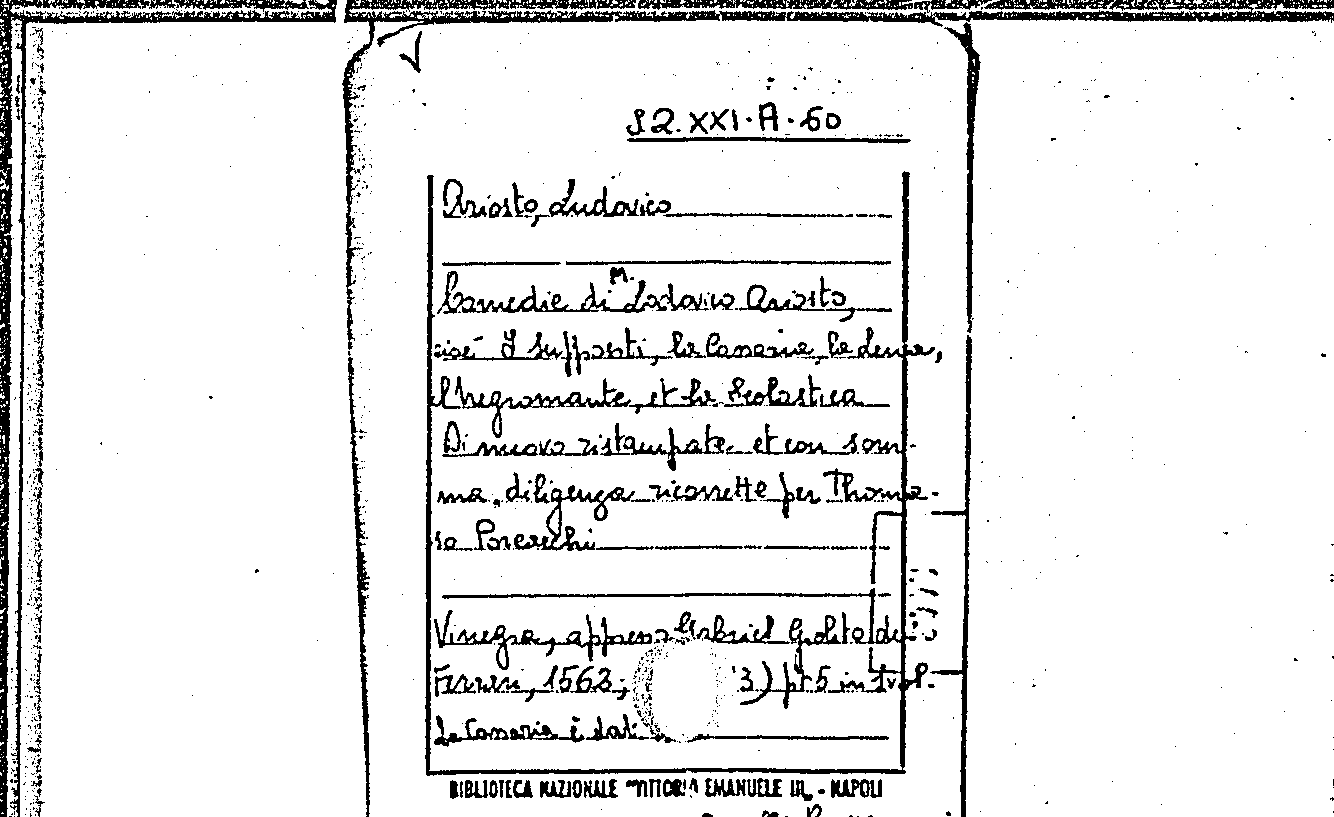 S.Q. XXI. A. 60
Ariosto, Ludovico
Comedie di M. Lodovico Ariosto,
cioè I Supposti, la Cassaria, la Lena,
il Negromante, et la Scolastica
Di nuovo ristampate et con som-
ma diligenza ricorrette per Thoma-
so Porcacchi
Vinegia, appresso Gabriel Giolito de'
Ferrari, 1562; 3) pt 5 in 1 vol.
La Cassaria è dat
BIBLIOTECA NAZIONALE "VITTORIA EMANUELE III" - NAPOLI